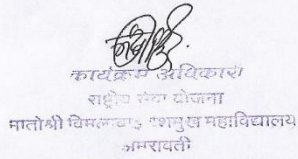 कार्यक्रम अधिकारी
राष्ट्रीय सेवा योजना
मातोश्री विमलाबाई देशमुख महाविद्यालय
अमरावती